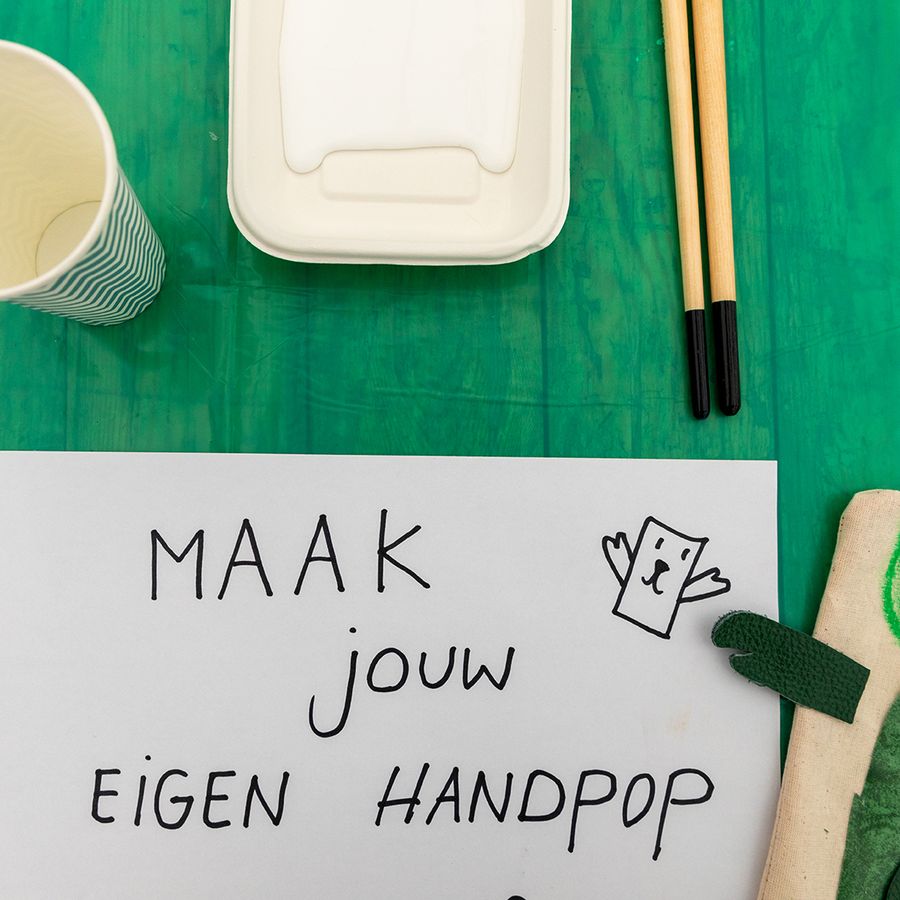 MAAK
jouw
EiGEN HANDPOP